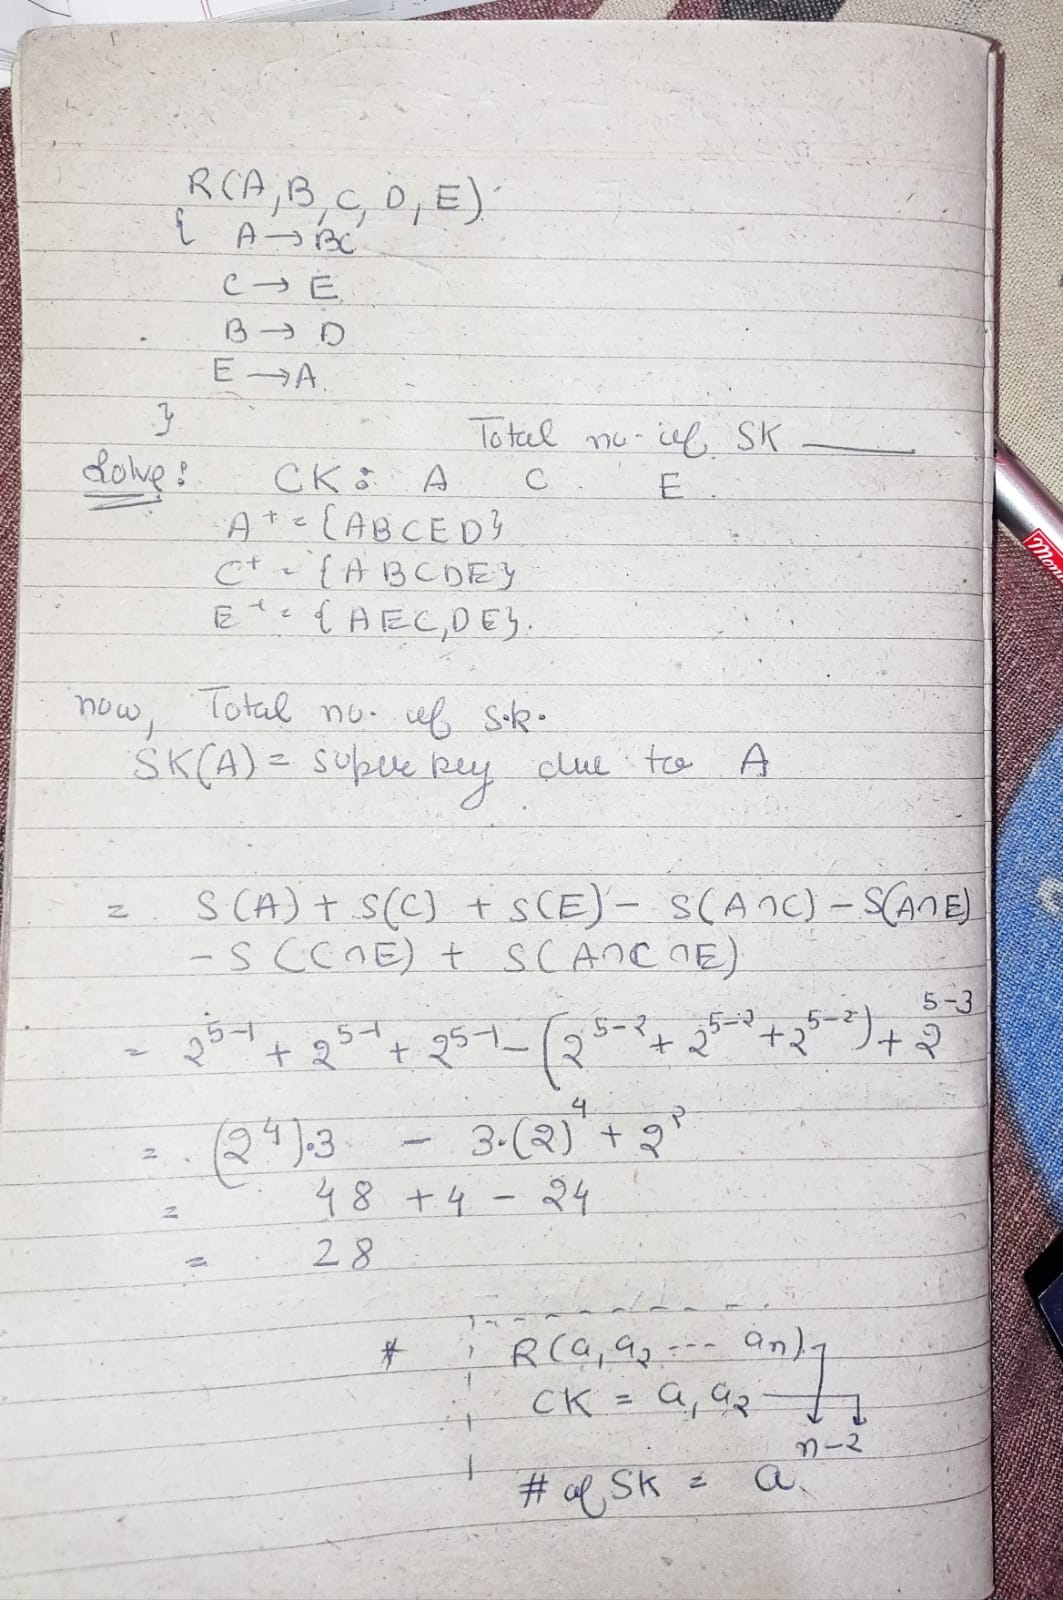 R(A,B,C,D,E)
{ A → BC
C → E
B → D
E → A
}
Total no. of SK ____
Solve:
CK: A C E
A⁺ = {ABCED}
C⁺ = {ABCDE}
E⁺ = {AEC,DE}.
now, Total no. of s.k.
SK(A) = super key due to A
= S(A) + S(C) + S(E) - S(A∩C) - S(A∩E)
- S(C∩E) + S(A∩C∩E)
= 2⁵⁻¹ + 2⁵⁻¹ + 2⁵⁻¹ - (2⁵⁻² + 2⁵⁻² + 2⁵⁻²) + 2⁵⁻³
= (2⁴)·3 - 3·(2)⁴ + 2²
= 48 + 4 - 24
= 28
# R(a, a₂ --- an)
CK = a, a₂
# of SK = 2ⁿ⁻²